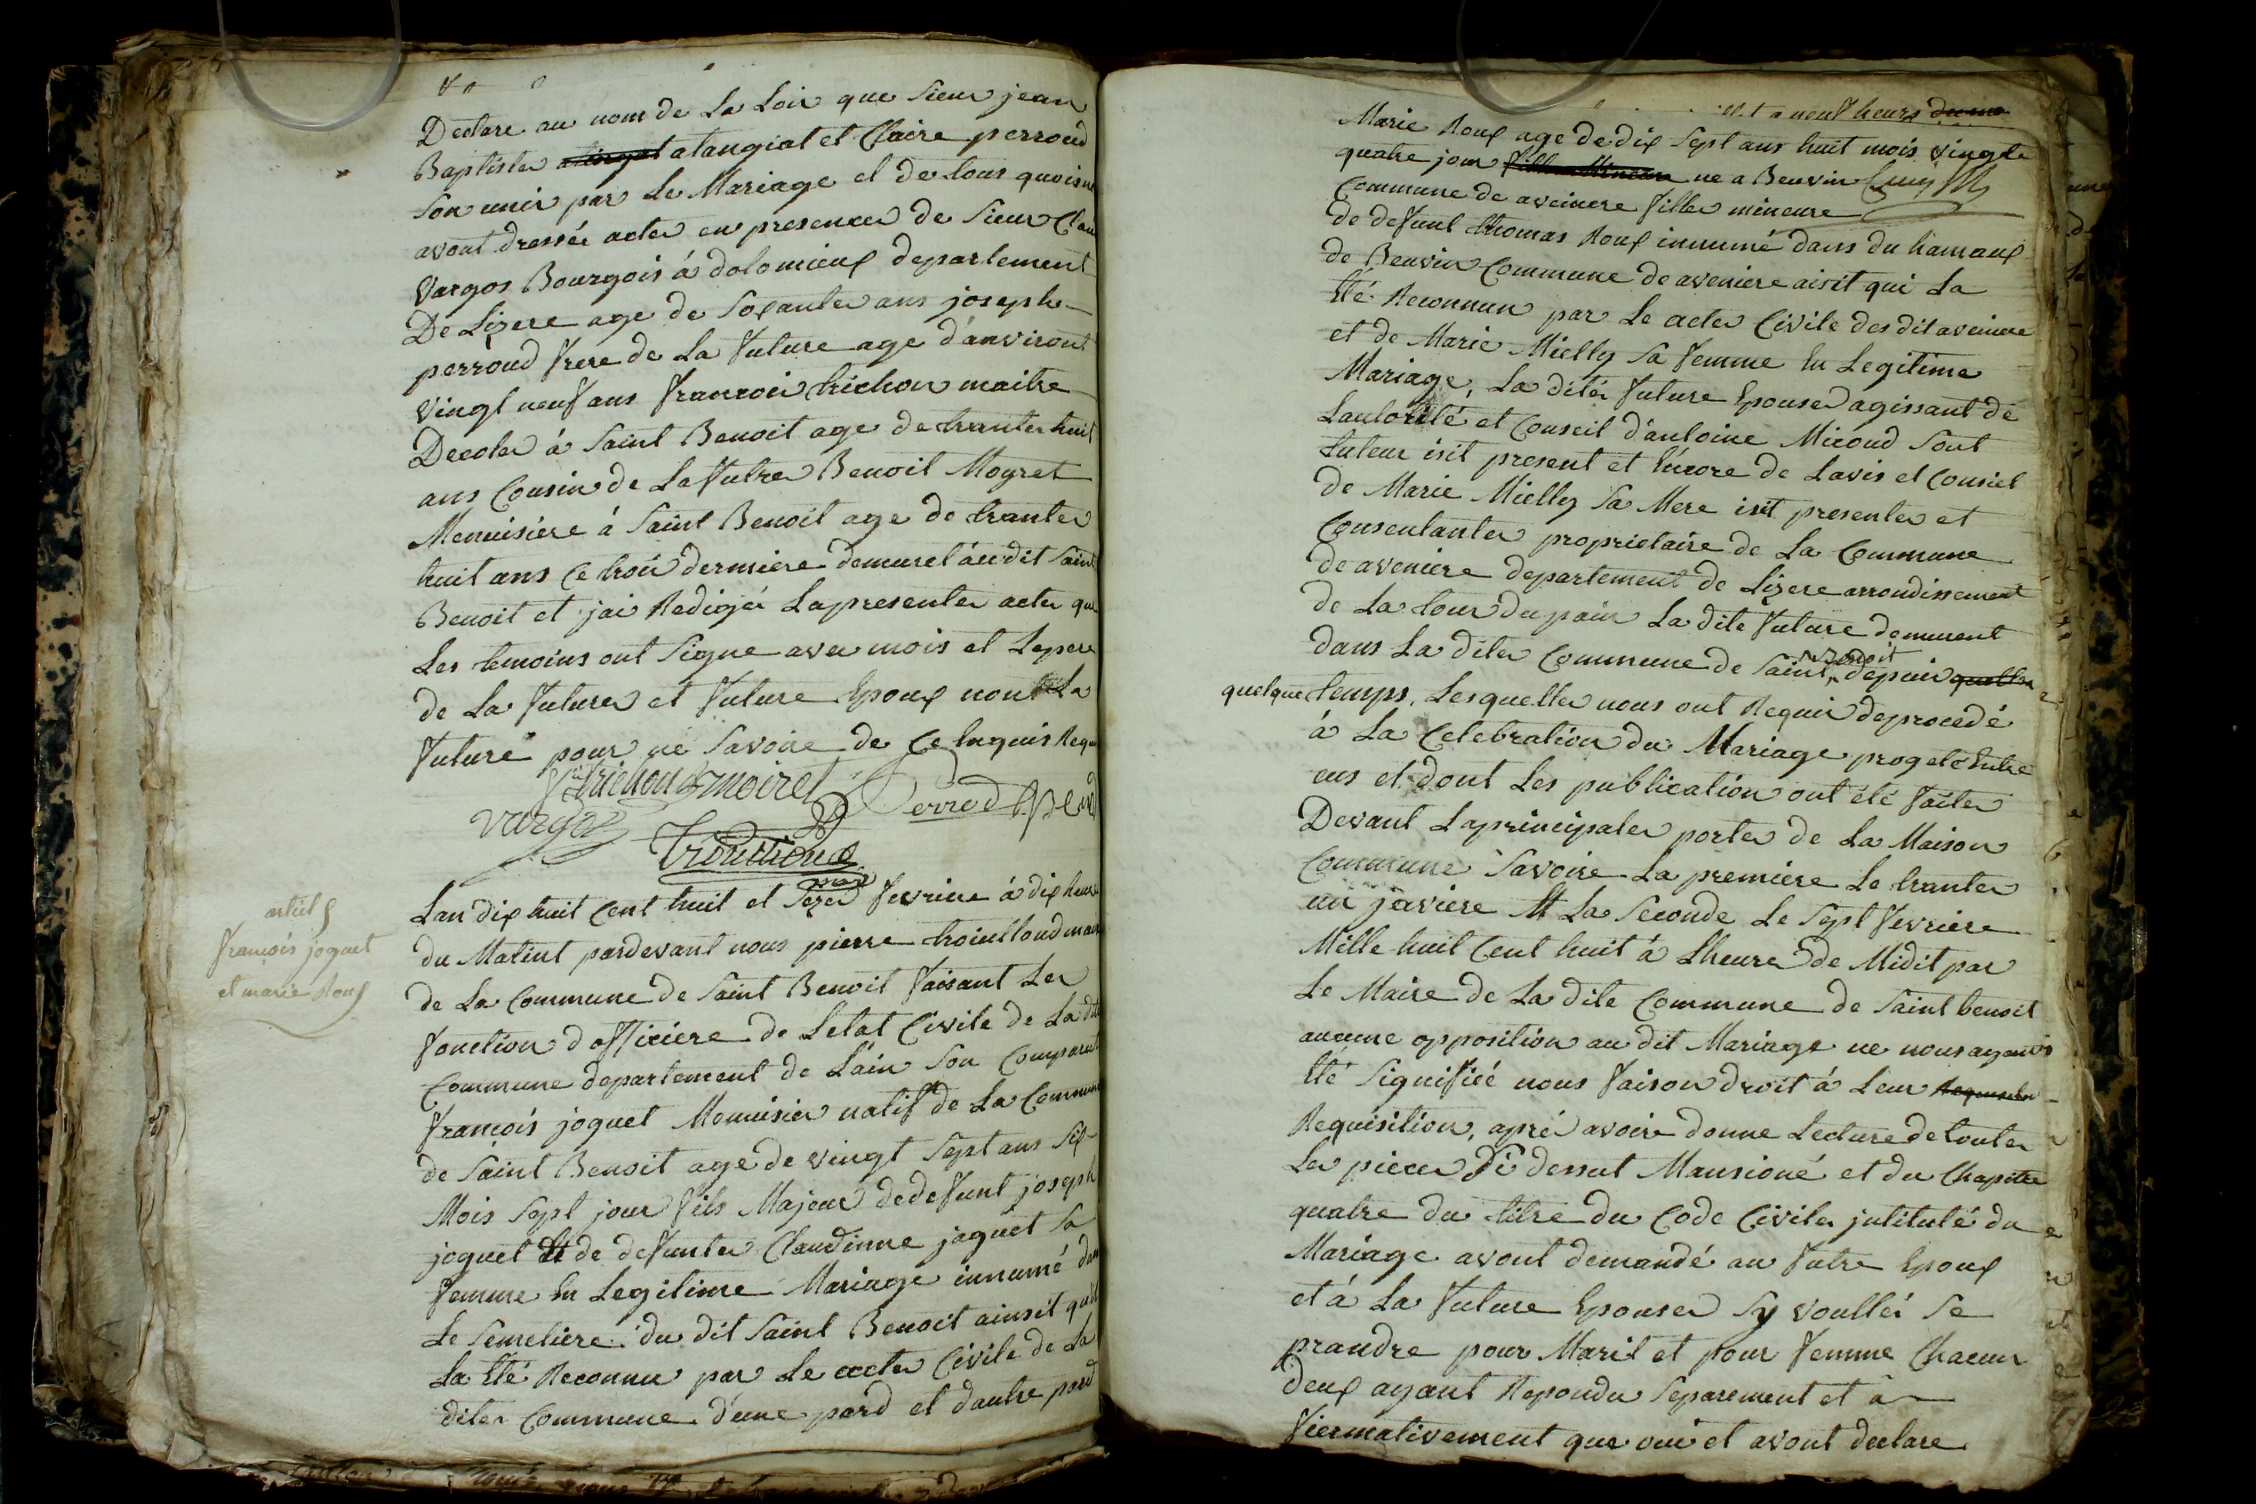 Declare au nom de La Loix que Sieur jean
Baptister atangiat et Claire perroud
Son unir par Le Mariage et de tous quoi
avont dressér acter en presencer de Sieur
Vargos Bourgois á dolomieux departement
De Lizere age de Soixanter ans joseph
perroud frere de La future age d'anviront
Vingt neuf ans francoir trichon maitre
Decoler á Saint Benoit age de tranter huit
ans Cousin de La futre Benoit Moyret
Menuisiere á Saint Benoit age de tranter
huit ans Ce troir dermiere demurel audit Saint
Benoit et jai Redigér Lapresenter acter que
Les temoins ont Signe aver mois et Lepere
de La future et future Epoux nont La
future pour né Savoire de Ce Enquis Requi
trichon moiret Perrod
vargoz
Lan dix huit Cent huit et Sezer fevriere á dix heure
du Matint pardevant nous pierre trouilloud maire
artiel 5
françois joguet
et marie Roux
de La Commune de Saint Benoit faisant Les
fonction d officiere de Letat Civile de La dite
Commune departement de Láin Son Comparut
françois joguet Menuisier natif de La Commune
de Saint Benoit age de vingt Sept ans Six
Mois Sept jour fils Majeur dedefunt joseph
joguet Et de defunter Claudinne jaguet Sa
femme En Legitime Mariage innumé dans
Le Semetiere du dit Saint Benoit ainsit quil
La Eté Reconnu par Le acter Civile de La
diter Commune d'une pard et dautre pard
a neuf heurs
Marie Roux age de dix Sept ans huit mois vingt
quatre jour ne a Beuvin
Commune de aveinere filler mineure
de defunt thomas Roux innumé dans du hamaux
de Beuvin Commune de aveniere aisit qui La
Eté Reconnun par Le acter Civile des dit aveniere
et de Marie Mielly Sa femme En Legitime
Mariage, La ditér future Epouser agissant de
Lautorité et Conseit d'antoine Micoud Sont
tuteur isit present et Encore de Lavis et Consiel
de Marie Mielly Sa Mere isit presenter et
Consentanter proprietaire de La Commune
de aveniere departement de Lizere arrondissement
de La tour du pain La dite future demurent
dans La diter Commune de Saint Benoit depuir
quelque temps. Lesqueller nous ont Requir deprocedé
á La Celebration du Mariage progeté Entre
eus et dont Les publication ont été faiter
Devant Laprincipaler porter de La Maison
Commune Savoire La premiere Le tranter
un javiere Et La Seconde Le Sept fevriere
Mille huit Cent huit á Lheure de Midit par
Le Maire de La dite Commune de Saint benoit
aucune opposition au dit Mariage ne nous ayant
Eté Signifieé nous faison droit á Leur
Requisition, aprér avoire donne Lecture de touter
Les piecer Di dessut Mansioné et du Chapiter
quatre du titre du Code Civiler intitulé du
Mariage avont demandé au futre Epoux
et á La future Epouser Sy voullér Se
prandre pour Marit et pour femme Chacun
deux ayant Repondu Separement et a
fiermativement que oui et avont declare